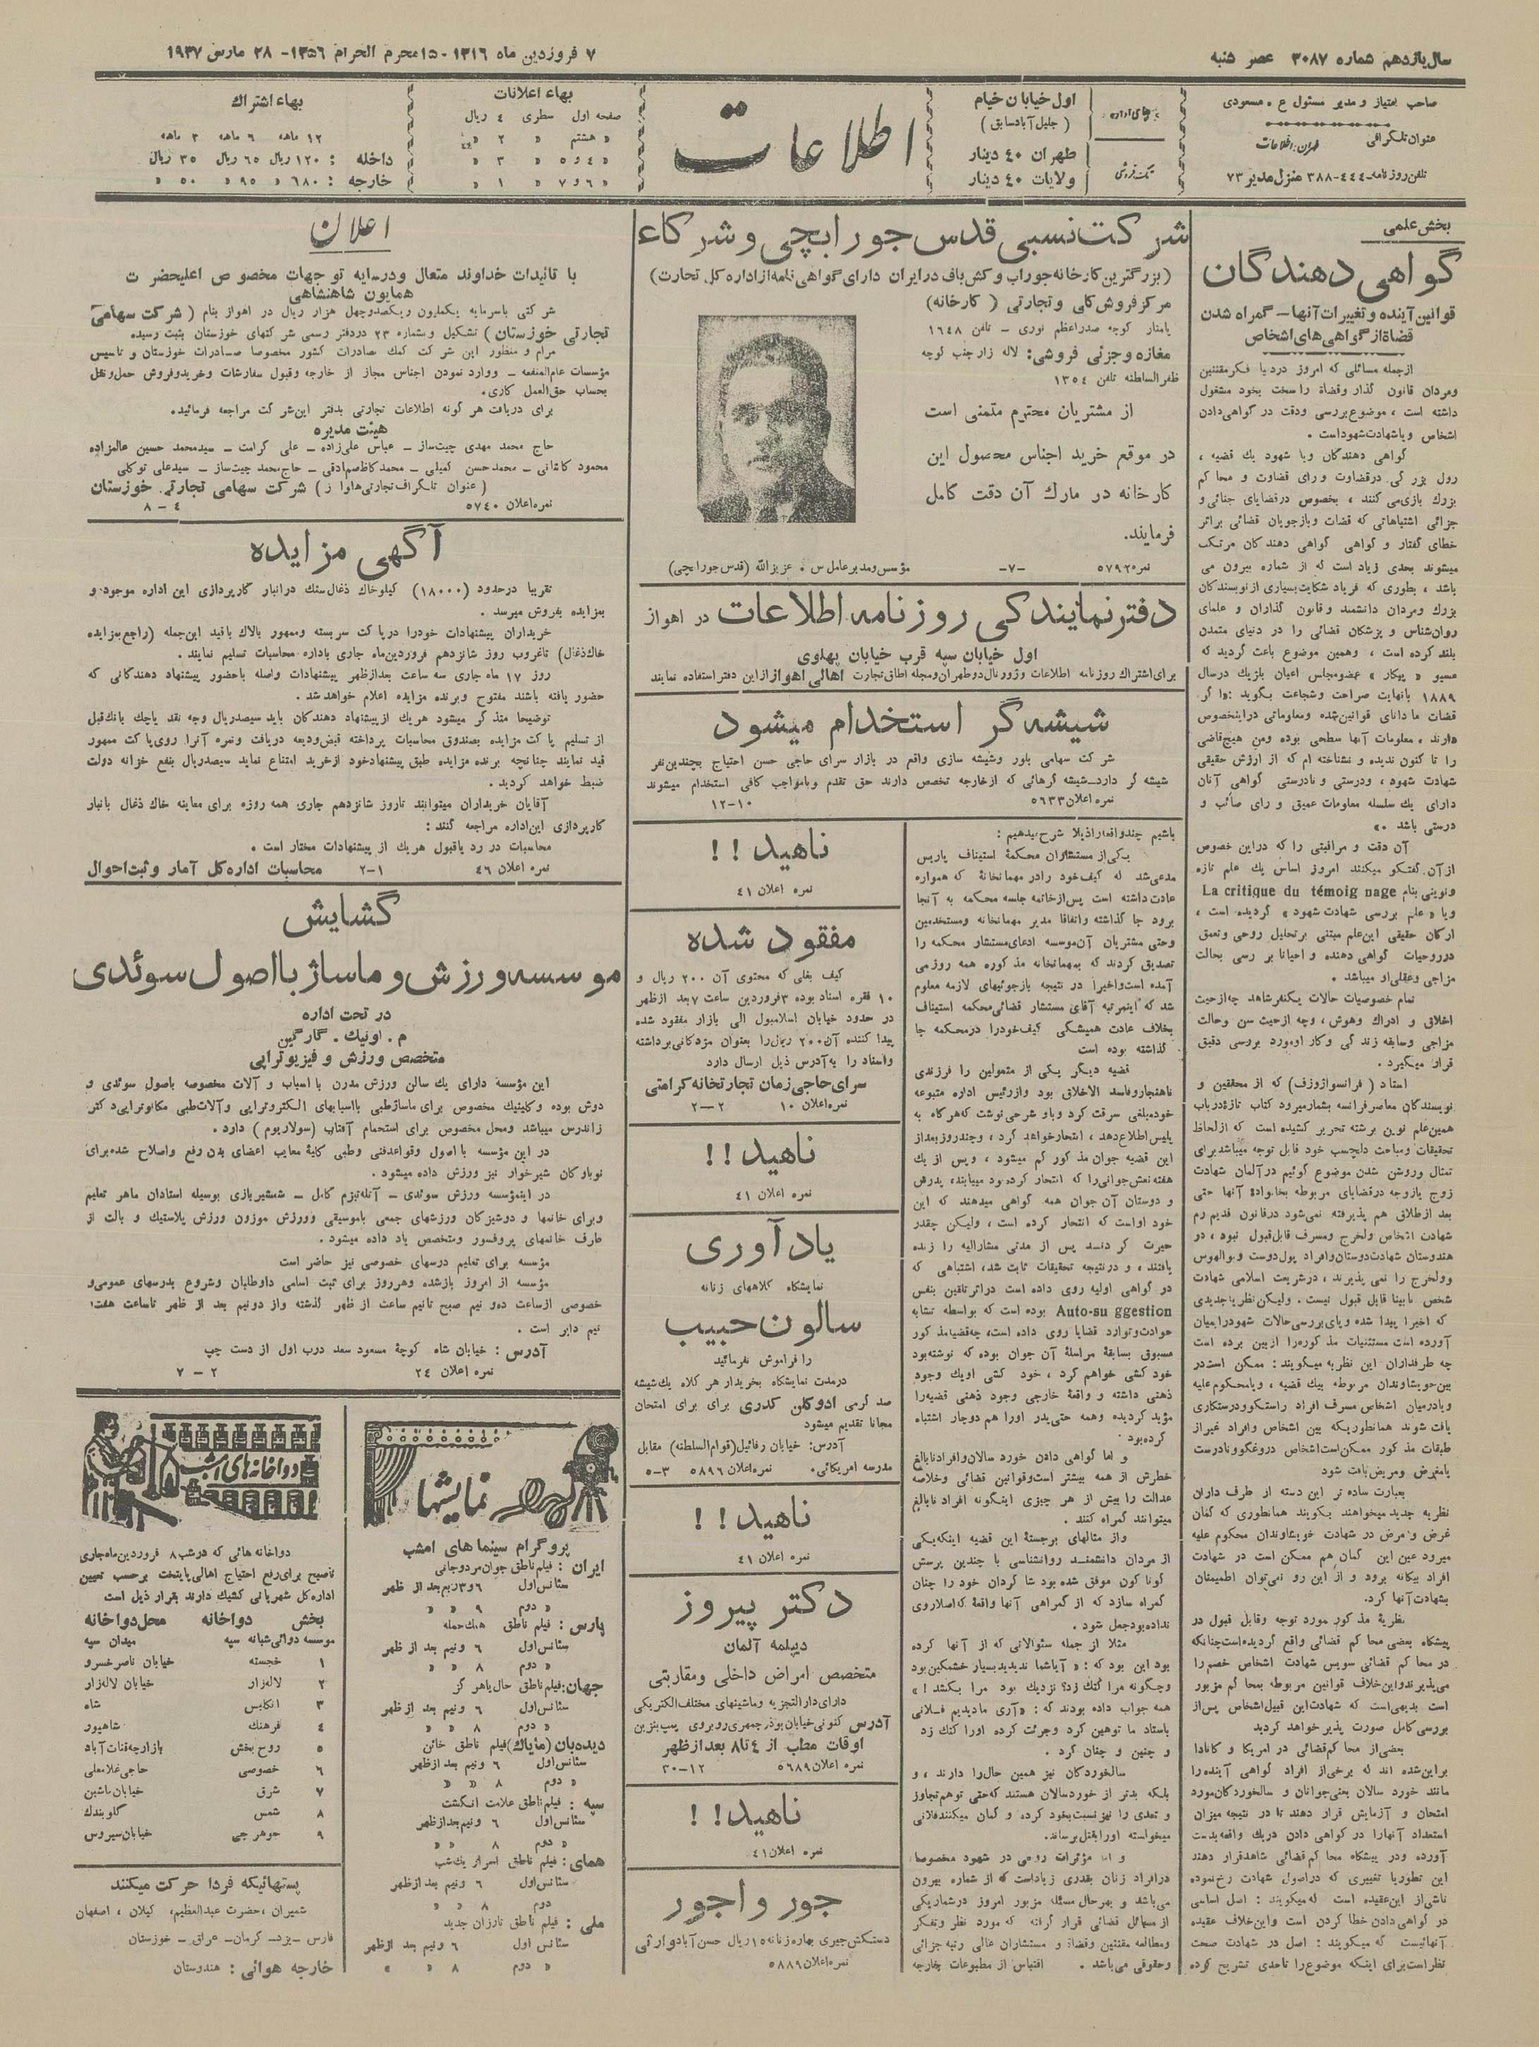 سال یازدهم شماره ۳۰۸۷ عصر شنبه
۷ فروردین ماه ۱۳۱۶ - ۱۵ محرم الحرام ۱۳۵۶ - ۲۸ مارس ۱۹۳۷
صاحب امتیاز و مدیر مسئول ع . مسعودی
عنوان تلگرافی طهران: اطلاعات
تلفن روزنامه ۴۴۴-۳۸۸ منزل مدیر ۷۳
جای اداره
اول خیابان خیام
(جلیل آباد سابق)
تک فروشی
طهران ۴۰ دینار
ولایات ۴۰ دینار
اطلاعات
بهاء اعلانات
صفحه اول سطری ٤ ریال
« هشتم « ۲ «
« ٤ و ٥ « ۳ «
« ٦ و ۷ « ۱ «
بهاء اشتراک
۱۲ ماهه ٦ ماهه ۳ ماهه
داخله : ۱۲۰ ریال ٦٥ ریال ۳٥ ریال
خارجه : ٦٨۰ « ۹٥ « ٥۰ «
بخش علمی
گواهی دهندگان
قوانین آینده و تغییرات آنها - گمراه شدن
قضاة از گواهی های اشخاص
ازجمله مسائلی که امروز در دنیا فکر مقننین
ومردان قانون گذار وقضاة را سخت بخود مشغول
داشته است ، موضوع بررسی ودقت در گواهی دادن
اشخاص ویا شهادت شهود است .
گواهی دهندگان ویا شهود یك قضیه ،
رول بزرگی درقضاوت و رای قضاوت و محاکم
بزرك بازی می کنند ، بخصوص درقضایای جنائی و
جزائی اشتباهاتی که قضات وبازجویان قضائی براثر
خطای گفتار و گواهی گواهی دهندگان مرتکب
میشوند بحدی زیاد است که از شماره بیرون می
باشد ، بطوری که فریاد شکایت بسیاری از نویسندگان
بزرك ومردان دانشمند وقانون گذاران و علمای
روان شناس و پزشکان قضائی را در دنیای متمدن
بلند کرده است ، وهمین موضوع باعث گردید که
مسیو « پیکار » عضو مجلس اعیان بلژیك در سال
۱۸۸۹ با نهایت صراحت وشجاعت بگوید : « اگر
قضات ما دانای قوانین شده ومعلوماتی دراینخصوص
دارند ، معلومات آنها سطحی بوده ومن هیچ قاضی
را تا کنون ندیده و نشناخته ام که از ارزش حقیقی
شهادت شهود ، ودرستی و نادرستی گواهی آنان
دارای یك سلسله معلومات عمیق و رای صائب و
درستی باشد . »
آن دقت و مراقبتی را که دراین خصوص
از آن گفتگو میکنند امروز اساس یك علم تازه
ونوینی بنام La critique du témoig nage
ویا « علم بررسی شهادت شهود » گردیده است ،
ارکان حقیقی این علم مبتنی بر تحلیل روحی وتعمق
در روحیات گواهی دهنده و احیانا بر رسی بحالت
مزاجی و عقلی او میباشد .
تمام خصوصیات حالات یکنفر شاهد چه از حیث
اخلاق و ادراك وهوش ، وچه از حیث سن وحالت
مزاجی وسابقه زندگی وکار او مورد بررسی دقیق
قرار میگیرد .
استاد ( فرانسوا ژوزف ) که از محققین و
نویسندگان معاصر فرانسه بشمار میرود کتاب تازه در باب
همین علم نوین برشته تحریر کشیده است که از لحاظ
تحقیقات ومباحث دلچسب خود قابل توجه میباشد برای
تمثال وروشن شدن موضوع گوئیم در آلمان شهادت
زوج یا زوجه در قضایای مربوطه بخانواده آنها حتی
بعد از طلاق هم پذیرفته نمی شود در قانون قدیم رم
شهادت اشخاص ولخرج ومسرف قابل قبول نبود ، در
هندوستان شهادت دوستان وافراد پول دوست و بوالهوس
وولخرج را نمی پذیرند ، در شریعت اسلامی شهادت
شخص نابینا قابل قبول نیست . ولیکن نظریه جدیدی
که اخیرا پیدا شده و پای بررسی حالات شهود درا بمیان
آورده است مستثنیات مذکوره را از بین برده است
چه طرفداران این نظریه میگویند : ممکن است در
بین خویشاوندان مربوطه بیك قضیه ، ویا محکوم علیه
ویا درمیان اشخاص مسرف افراد راستگو ودرستکاری
یافت شوند همانطوریکه بین اشخاص وافراد غیر از
طبقات مذکور ممکن است اشخاص دروغگو ونادرست
یا مغرض ومریض یافت شود
بعبارت ساده تر این دسته از طرف داران
نظریه جدید میخواهند بگویند همانطوری که گمان
غرض و مرض در شهادت خویشاوندان محکوم علیه
میرود عین این گمان هم ممکن است در شهادت
افراد بیگانه برود و از این رو نمی توان اطمینان
بشهادت آنها کرد.
نظریهٔ مذکور مورد توجه وقابل قبول در
پیشگاه بعضی محاکم قضائی واقع گردیده است چنانکه
در محاکم قضائی سویس شهادت اشخاص خصم را
می پذیرند و این خلاف قوانین مربوطه بمحاکم مزبور
است بدیهی است که شهادت این قبیل اشخاص پس از
بررسی کامل صورت پذیر خواهد گردید
بعضی از محاکم قضائی در امریکا و کانادا
براین شده اند که برخی از افراد گواهی آینده را
مانند خورد سالان یعنی جوانان و سالخوردگان مورد
امتحان و آزمایش قرار دهند تا در نتیجه میزان
استعداد آنها را در گواهی دادن دریك واقعه بدست
آورده ودر پیشگاه محاکم قضائی شاهد قرار دهند
این تطوریا تغییری که دراصول شهادت رخ نموده
ناشی از این عقیده است که میگویند : اصل اساسی
در گواهی دادن خطا کردن است واین خلاف عقیده
آنهائیست که میگویند : اصل در شهادت صحت
نظر است برای اینکه موضوع را تاحدی تشریح کرده
شرکت نسبی قدس جورابچی و شرکاء
(بزرگترین کارخانه جوراب و کش باف در ایران دارای گواهی نامه از اداره کل تجارت)
مرکز فروش کلی و تجارتی ( کارخانه )
پامنار کوچه صدراعظم نوری - تلفن ۱٦٤۸
مغازه و جزئی فروشی: لاله زار جنب کوچه
ظفر السلطنه تلفن ۱۳٥٤
از مشتریان محترم متمنی است
در موقع خرید اجناس محصول این
کارخانه در مارك آن دقت کامل
فرمایند.
نمره ٥۷۹۲ -۷- مؤسس و مدیر عامل س . عزیزالله (قدس جورابچی)
دفتر نمایندگی روزنامه اطلاعات در اهواز
اول خیابان سپه قرب خیابان پهلوی
برای اشتراك روزنامه اطلاعات وژورنال دوطهران ومجله اطاق تجارت اهالی اهواز از این دفتر استفاده نمایند
شیشه گر استخدام میشود
شرکت سهامی بلور وشیشه سازی واقع در بازار سرای حاجی حسن احتیاج بچندین نفر
شیشه گر دارد - شیشه گرهائی که از خارجه تخصص دارند حق تقدم وبامواجب کافی استخدام میشوند
نمره اعلان ٥٦۳۳ ۱۰-۱۲
باشیم چند واقعه را ذیلا شرح میدهیم :
یکی از مستشاران محکمهٔ استیناف پاریس
مدعی شد که کیف خود را در مهمانخانهٔ که همواره
عادت داشته است پس از خاتمه جلسه محکمه به آنجا
برود جا گذاشته واتفاقا مدیر مهمانخانه ومستخدمین
وحتی مشتریان آن موسسه ادعای مستشار محکمه را
تصدیق کردند که بمهمانخانه مذکوره همه روز می
آمده است واخیرا در نتیجه بازجوئیهای لازمه معلوم
شد که اینمرتبه آقای مستشار قضائی محکمه استیناف
بخلاف عادت همیشگی کیف خود را در محکمه جا
گذاشته بوده است
قضیه دیگر یکی از متمولین را فرزندی
ناهنجار وفاسد الاخلاق بود واز رئیس اداره متبوعه
خود مبلغی سرقت کرد وباو شرحی نوشت که هرگاه به
پلیس اطلاع دهد ، انتحار خواهد کرد ، وچند روز بعد از
این قضیه جوان مذکور گم میشود ، وپس از یك
هفته نعش جوانی را که انتحار کرده بود مییابند ، پدرش
و دوستان آن جوان همه گواهی میدهند که این
خود اواست که انتحار کرده است ، ولیکن چقدر
حیرت کردند پس از مدتی مشارالیه را زنده
یافتند ، و درنتیجه تحقیقات ثابت شد، اشتباهی که
دو گواهی اولیه روی داده است دراثر تلقین بنفس
Auto-su ggestion بوده است که بواسطه تشابه
حوادث وتوارد قضایا روی داده است، چه قضیه مذکور
مسبوق بسابقهٔ مراسلهٔ آن جوان بوده که نوشته بود
خود کشی خواهم کرد ، خود کشی اویك وجود
ذهنی داشته و واقعهٔ خارجی وجود ذهنی قضیه را
مؤید گردیده وهمه حتی پدر اورا هم دوچار اشتباه
کرده بود .
و اما گواهی دادن خورد سالان وافراد نابالغ
خطرش از همه بیشتر است وقوانین قضائی وخلاصه
عدالت را بیش از هر چیزی اینگونه افراد نابالغ
میتوانند گمراه کنند .
و از مثالهای برجستهٔ این قضیه اینکه یکی
از مردان دانشمند روانشناسی با چندین پرسش
گوناگون موفق شده بود شاگردان خود را چنان
گمراه سازد که از گمراهی آنها واقعهٔ که اصلا روی
نداده بود جعل شود .
مثلا از جمله سئوالاتی که از آنها کرده
بود این بود که : « آیا شما ندیدید بسیار خشمگین بود
وچگونه مرا کتك زد؟ نزدیك بود مرا بکشد ! »
همه جواب داده بودند که : « آری ما دیدیم فلانی
باستاد ما توهین کرد وجرئت کرده اورا کتك زد
و چنین و چنان کرد .
سالخوردگان نیز همین حال را دارند ، و
بلکه بدتر از خورد سالان هستند که حتی توهم تجاوز
و تعدی را نیز نسبت بخود کرده و گمان میکنند فلانی
میخواسته اورا بقتل برساند .
و اما مؤثرات روحی در شهود مخصوصا
درافراد زنان بقدری زیاد است که از شماره بیرون
می باشد و بهر حال مسئله مزبور امروز در شمار یکی
از مسائل قضائی قرار گرفته که مورد نظر وتفکر
ومطالعه مقننین وقضاة و مستشاران عالی رتبه جزائی
وحقوقی می باشد . اقتباس از مطبوعات خارجه
ناهید ! !
نمره اعلان ٤۱
مفقود شده
کیف بغلی که محتوی آن ۲۰۰ ریال و
۱۰ فقره اسناد بوده ۳ فروردین ساعت ۷ بعد ازظهر
در حدود خیابان اسلامبول الی بازار مفقود شده
پیدا کننده آن ۲۰۰ ریال را بعنوان مژدگانی برداشته
واسناد را به آدرس ذیل ارسال دارد
سرای حاجی زمان تجارتخانه کرامتی
نمره اعلان ۱۰ ۲-۲
ناهید ! !
نمره اعلان ٤۱
یادآوری
نمایشگاه کلاههای زنانه
سالون حبیب
را فراموش نفرمائید
درمدت نمایشگاه بخریدار هر کلاه یك شیشه
صد گرمی ادوکلن کدری برای برای امتحان
مجانا تقدیم میشود
آدرس: خیابان رفائیل (قوام السلطنه) مقابل
مدرسه امریکائی . نمره اعلان ٥۸۹٦ ۳-٥
ناهید ! !
نمره اعلان ٤۱
دکتر پیروز
دیپلمه آلمان
متخصص امراض داخلی و مقاربتی
دارای دارالتجزیه وماشینهای مختلف الکتریکی
آدرس کنونی خیابان بوذرجمهری روبروی پمپ بنزین
اوقات مطب از ٤ تا ۸ بعد از ظهر
نمره اعلان ٥٦۸۹ ۱۲-۳۰
ناهید ! !
نمره اعلان ٤۱
جور و اجور
دستکش جیری بهاره زنانه ۱٥ ریال حسن آباد وارثی
نمره اعلان ٥۸۸۹
اعلان
با تائیدات خداوند متعال ودرسایه توجهات مخصوص اعلیحضرت
همایون شاهنشاهی
شرکتی باسرمایه یکملیون ویکصدوچهل هزار ریال در اهواز بنام ( شرکت سهامی
تجارتی خوزستان ) تشکیل وبشماره ۲۳ دردفتر رسمی شرکتهای خوزستان بثبت رسیده.
مرام و منظور این شرکت کمك صادرات کشور مخصوصا صادرات خوزستان و تاسیس
مؤسسات عام المنفعه - ووارد نمودن اجناس مجاز از خارجه وقبول سفارشات وخریدوفروش حمل ونقل
بحساب حق العمل کاری.
برای دریافت هر گونه اطلاعات تجارتی بدفتر این شرکت مراجعه فرمائید.
هیئت مدیره
حاج محمد مهدی چیت ساز - عباس علی زاده - علی کرامت - سیدمحمد حسین عالمزاده
محمود کاشانی - محمدحسن کمیلی - محمدکاظم صادقی - حاج محمد چیت ساز - سیدعلی توکلی
( عنوان تلگراف تجارتی هاوا ز ) شرکت سهامی تجارتی خوزستان
نمره اعلان ٥۷٤۰ ٤-۸
آگهی مزایده
تقریبا درحدود (۱۸۰۰۰) کیلو خاك ذغال سنك درانبار کارپردازی این اداره موجود و
بمزایده بفروش میرسد .
خریداران پیشنهادات خودرا درپاکت سربسته وممهور بالاك باقید این جمله (راجع بمزایده
خاك ذغال) تاغروب روز شانزدهم فروردین ماه جاری باداره محاسبات تسلیم نمایند .
روز ۱۷ ماه جاری سه ساعت بعدازظهر پیشنهادات واصله باحضور پیشنهاد دهندگانی که
حضور یافته باشند مفتوح وبرنده مزایده اعلام خواهد شد .
توضیحا متذکر میشود هریك ازپیشنهاد دهندگان باید سیصد ریال وجه نقد یا چك بانك قبل
از تسلیم پاکت مزایده بصندوق محاسبات پرداخته قبض ودیعه دریافت ونمره آنرا روی پاکت ممهور
قید نمایند چنانچه برنده مزایده طبق پیشنهاد خود ازخرید امتناع نماید سیصدریال بنفع خزانه دولت
ضبط خواهد گردید .
آقایان خریداران میتوانند تاروز شانزدهم جاری همه روزه برای معاینه خاك ذغال بانبار
کارپردازی این اداره مراجعه کنند :
محاسبات در رد یاقبول هریك از پیشنهادات مختار است .
نمره اعلان ٤٦ ۱-۲ محاسبات اداره کل آمار و ثبت احوال
گشایش
موسسه ورزش و ماساژ بااصول سوئدی
در تحت اداره
م . اونیك . گارگین
متخصص ورزش و فیزیوتراپی
این مؤسسه دارای یك سالن ورزش مدرن با اسباب و آلات مخصوصه باصول سوئدی و
دوش بوده وکلینیك مخصوص برای ماساژ طبی بااسبابهای الکتروتراپی وآلات طبی مکانوتراپی دکتر
زاندرس میباشد ومحل مخصوص برای استحمام آفتاب (سولاریوم) دارد .
در این مؤسسه با اصول وقواعدفنی وطبی کلیهٔ معایب اعضای بدن رفع واصلاح شده برای
نوباوگان شیرخوار نیز ورزش داده میشود .
در اینمؤسسه ورزش سوئدی - آتله تیزم کامل - شمشیربازی بوسیله استادان ماهر تعلیم
وبرای خانمها و دوشیزگان ورزشهای جمعی باموسیقی وورزش موزون ورزش پلاستیك و بالت از
طرف خانمهای پروفسور ومتخصص یاد داده میشود .
مؤسسه برای تعلیم درسهای خصوصی نیز حاضر است
مؤسسه از امروز بازشده وهرروز برای ثبت اسامی داوطلبان وشروع بدرسهای عمومی و
خصوصی ازساعت ده و نیم صبح تانیم ساعت از ظهر گذشته واز دونیم بعد از ظهر تاساعت هفت و
نیم دایر است .
آدرس : خیابان شاه کوچهٔ مسعود سعد درب اول از دست چپ
نمره اعلان ۲٤ ۲-۷
نمایشها
پروگرام سینماهای امشب
ایران : فیلم ناطق جوان مرد وجانی
سئانس اول ٦ و ۳ ربع بعد از ظهر
« دوم ۹ « «
پارس : فیلم ناطق هنك حمله
سئانس اول ٦ ونیم بعد از ظهر
« دوم ۸ « «
جهان: فیلم ناطق حال یا هرگز
سئانس اول ٦ ونیم بعد ازظهر
« دوم ۸ « «
دیده بان (مایاك) فیلم ناطق خائن
سئانس اول ٦ ونیم بعد ازظهر
« دوم ۸ « «
سپه : فیلم ناطق علامت انگشت
سئانس اول ٦ ونیم بعد ازظهر
« دوم ۸ « «
همای : فیلم ناطق اسرار یك شب
سئانس اول ٦ ونیم بعد ازظهر
« دوم ۸ « «
ملی : فیلم ناطق تارزان جدید
سئانس اول ٦ ونیم بعد ازظهر
« دوم ۸ « «
دواخانه های امشب
دواخانه هائی که درشب ۸ فروردین ماه جاری
تاصبح برای رفع احتیاج اهالی پایتخت برحسب تعیین
اداره کل شهربانی کشیك دارند بقرار ذیل است
بخش دواخانه محل دواخانه
موسسه دوائی شبانه سپه میدان سپه
۱ خجسته خیابان ناصرخسرو
۲ لاله زار خیابان لاله زار
۳ انگلیس شاه
٤ فرهنك شاهپور
٥ روح بخش بازارچه قنات آباد
٦ خصوصی حاجی غلامعلی
۷ شرق خیابان ماشین
۸ شمس گلوبندك
۹ جوهرچی خیابان سیروس
پستهائیکه فردا حرکت میکنند
شمیران ، حضرت عبدالعظیم، گیلان ، اصفهان
فارس - یزد - کرمان - عراق - خوزستان
خارجه هوائی : هندوستان